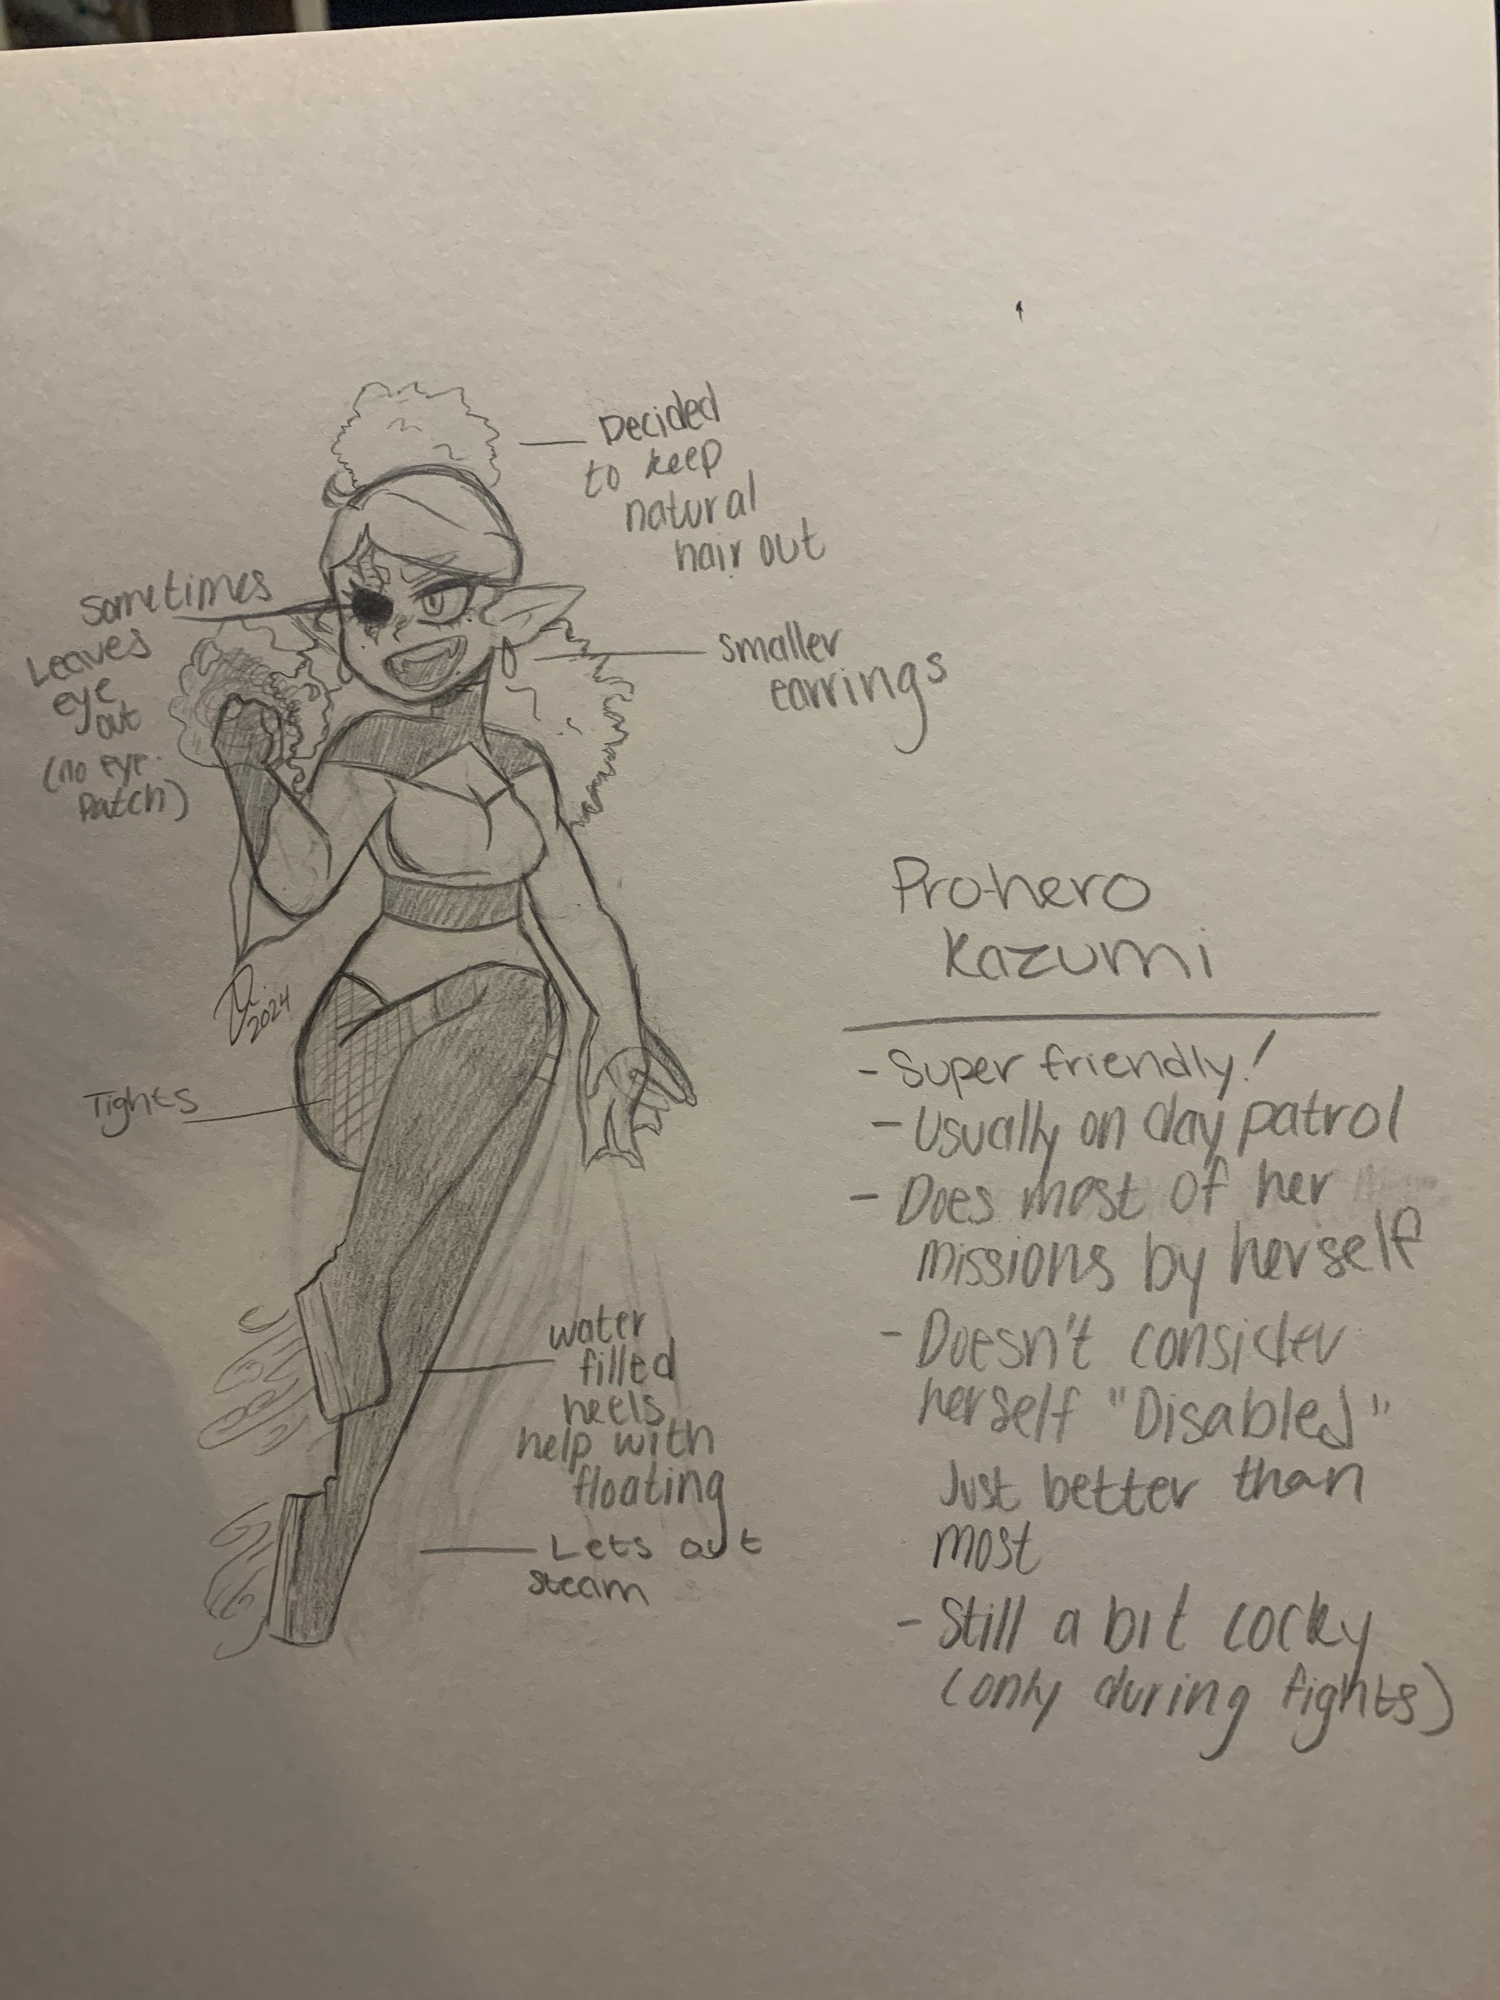 Decided
to keep
natural
hair out
Sometimes
Leaves
eye
out
(no eye
patch)
Smaller
earrings
2024
Tights
water
filled
heels
help with
floating
Lets out
steam
Pro-hero
Kazumi
- Super friendly!
- Usually on day patrol
- Does most of her
missions by herself
- Doesn't consider
herself "Disabled"
Just better than
most
- Still a bit cocky
(only during fights)